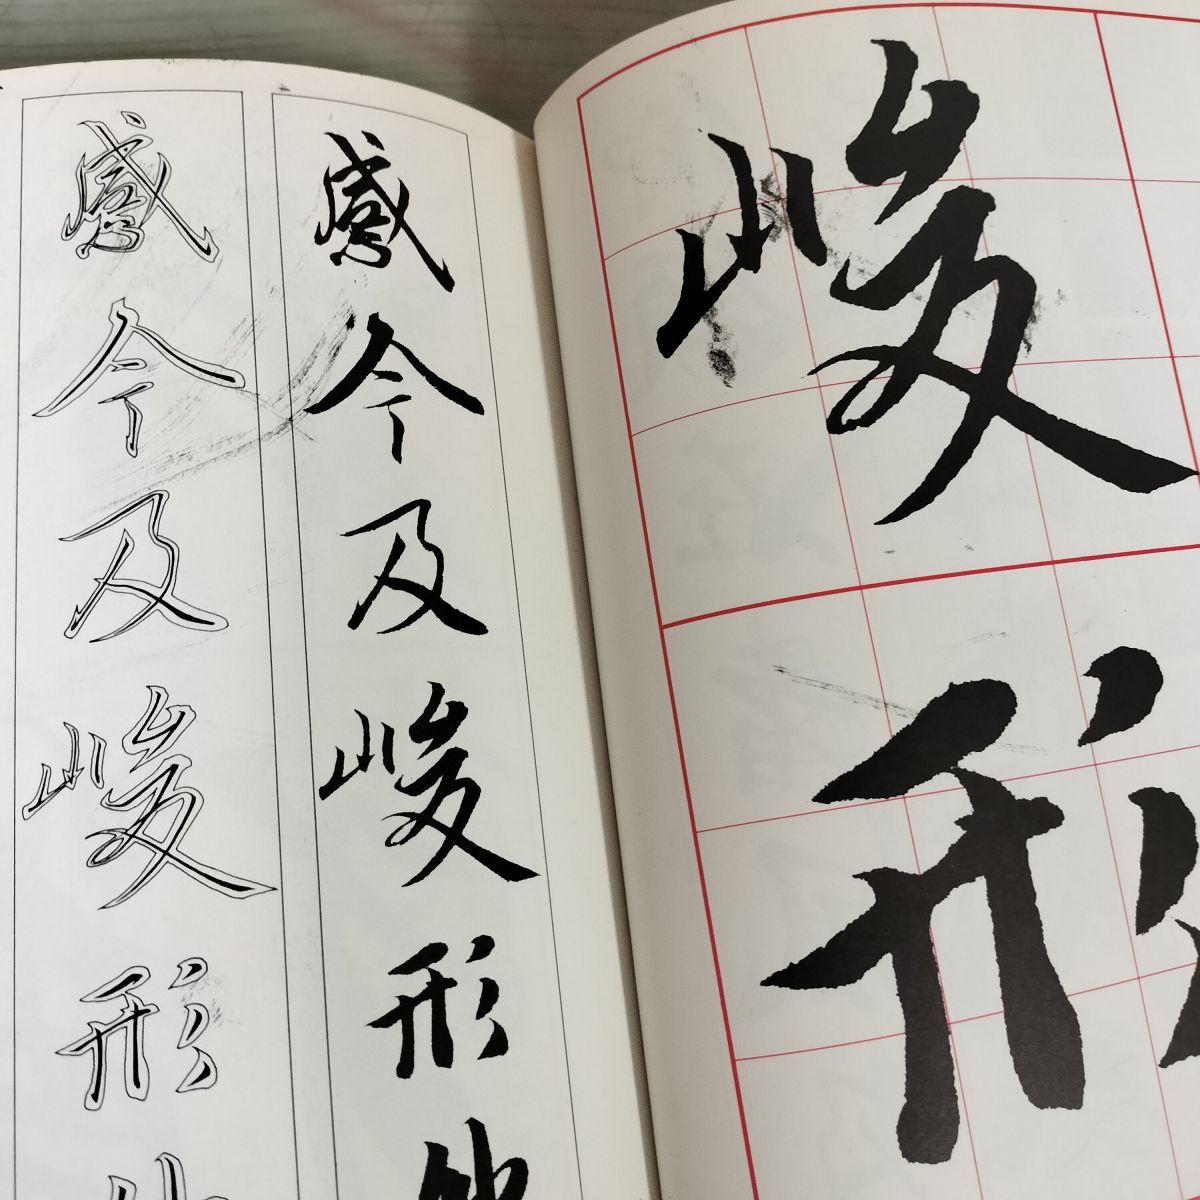 峻形
感今及峻形
感今及峻形